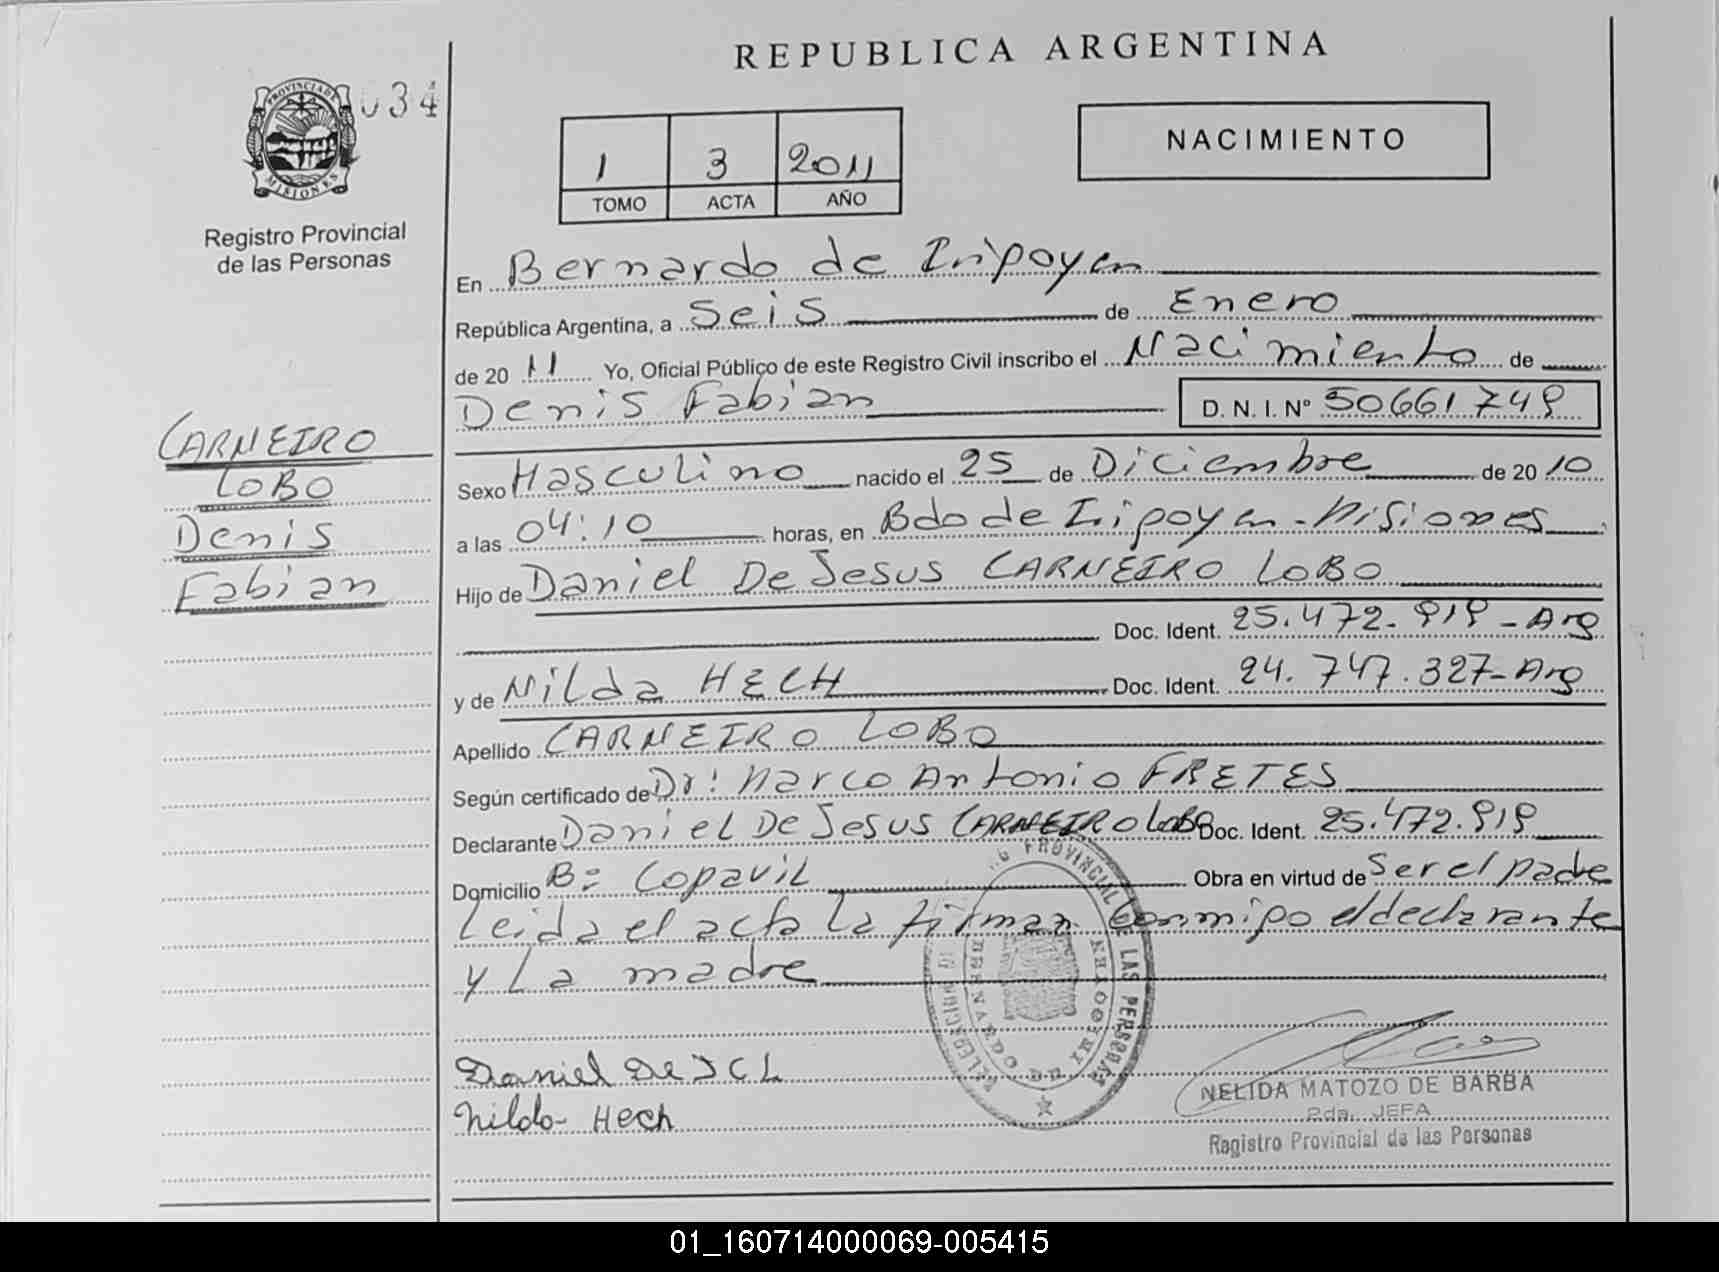 REPUBLICA ARGENTINA
034
PROVINCIA DE
MISIONES
Registro Provincial
de las Personas
1 3 2011
TOMO ACTA AÑO
NACIMIENTO
En Bernardo de Iripoyen
República Argentina, a Seis de Enero
de 20 11 Yo, Oficial Público de este Registro Civil inscribo el Nacimiento de
Denis Fabian D. N. I. Nº 50661749
CARNEIRO
LOBO
Denis
Fabian
Sexo Masculino nacido el 25 de Diciembre de 20 10
a las 04:10 horas, en Bdo de Iripoyen - Misiones
Hijo de Daniel De Jesus CARNEIRO LOBO
Doc. Ident. 25.472.919 - Arg
y de Nilda HECH Doc. Ident. 24.747.327 - Arg
Apellido CARNEIRO LOBO
Según certificado de Dr: Marco Antonio FRETES
Declarante Daniel De Jesus CARNEIRO LOBO Doc. Ident. 25.472.919
Domicilio B: Copavil Obra en virtud de Ser el padre
Leida el acta la firman conmipo el declarante
y La madre
PROVINCIAL DE LAS PERSONAS
Daniel De J C L
Nilda Hech
NELIDA MATOZO DE BARBA
2da. JEFA
Registro Provincial de las Personas
01_160714000069-005415